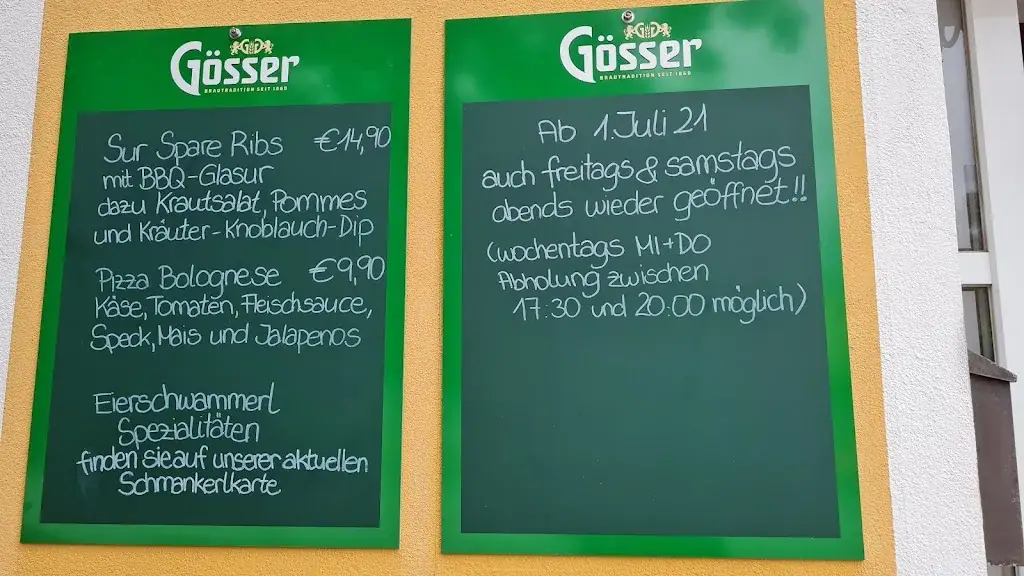 GD
Gösser
BRAUTRADITION SEIT 1860
Sur Spare Ribs €14,90
mit BBQ-Glasur
dazu Krautsalat, Pommes
und Kräuter-Knoblauch-Dip
Pizza Bolognese €9,90
Käse, Tomaten, Fleischsauce,
Speck, Mais und Jalapenos
Eierschwammerl
Spezialitäten
finden sie auf unserer aktuellen
Schmankerlkarte
GD
Gösser
BRAUTRADITION SEIT 1860
Ab 1.Juli 21
auch freitags & samstags
abends wieder geöffnet!!
(wochentags MI+DO
Abholung zwischen
17:30 und 20:00 möglich)